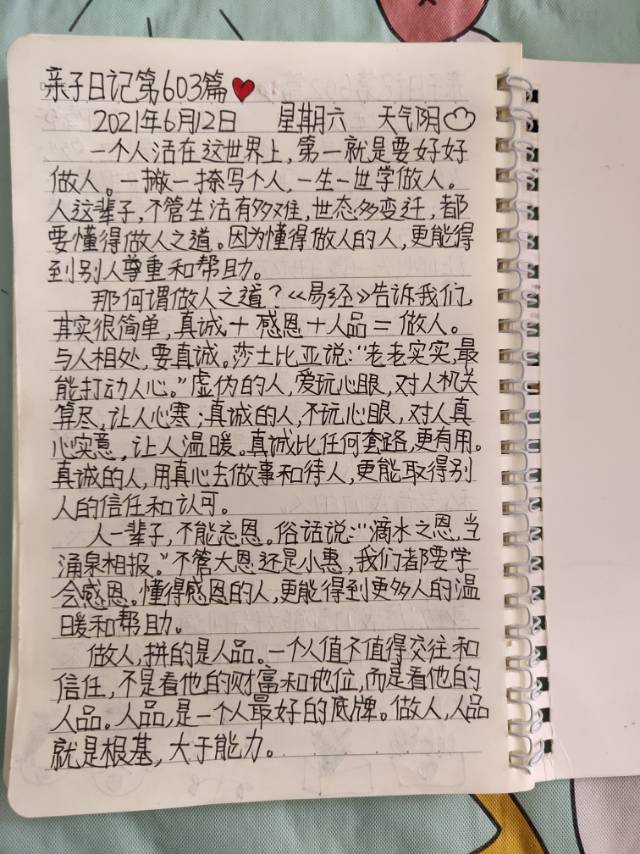 亲子日记第603篇
2021年6月12日 星期六 天气阴
一个人活在这世界上,第一就是要好好
做人。一撇一捺写个人,一生一世学做人。
人这辈子,不管生活有多难,世态多变迁,都
要懂得做人之道。因为懂得做人的人,更能得
到别人尊重和帮助。
那何谓做人之道?《易经》告诉我们,
其实很简单,真诚+感恩+人品=做人。
与人相处,要真诚。莎士比亚说:"老老实实,最
能打动人心。"虚伪的人,爱玩心眼,对人机关
算尽,让人心寒;真诚的人,不玩心眼,对人真
心实意,让人温暖。真诚比任何套路,更有用。
真诚的人,用真心去做事和待人,更能取得别
人的信任和认可。
人一辈子,不能忘恩。俗话说:"滴水之恩,当
涌泉相报。"不管大恩还是小惠,我们都要学
会感恩。懂得感恩的人,更能得到更多人的温
暖和帮助。
做人,拼的是人品。一个人值不值得交往和
信任,不是看他的财富和地位,而是看他的
人品。人品,是一个人最好的底牌。做人,人品
就是根基,大于能力。